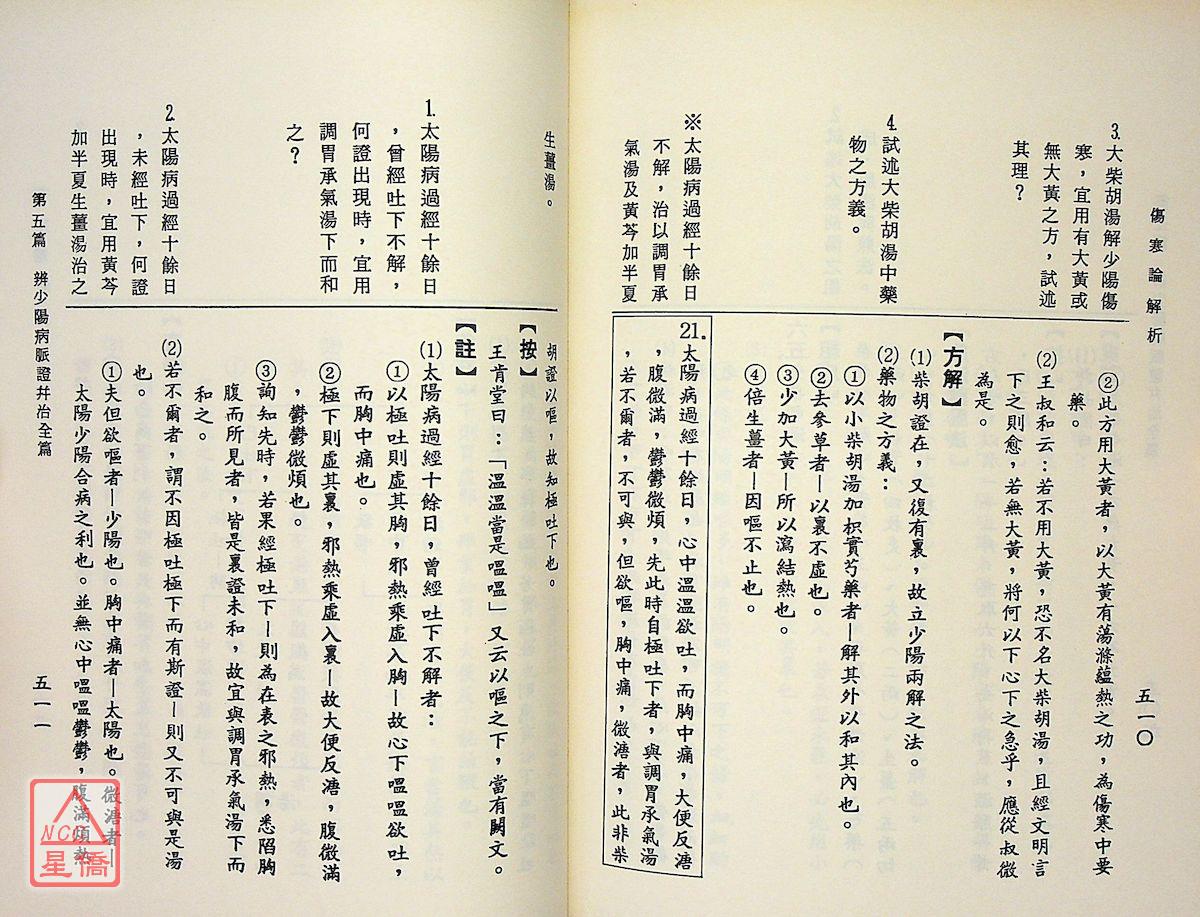 傷寒論解析
五一〇
3.大柴胡湯解少陽傷
寒，宜用有大黃或
無大黃之方，試述
其理？
4.試述大柴胡湯中藥
物之方義。
※太陽病過經十餘日
不解，治以調胃承
氣湯及黃芩加半夏
②此方用大黃者，以大黃有蕩滌蘊熱之功，為傷寒中要
藥。
⑵王叔和云：若不用大黃，恐不名大柴胡湯，且經文明言
下之則愈，若無大黃，將何以下心下之急乎，應從叔微
為是。
【方解】
⑴柴胡證在，又復有裏，故立少陽兩解之法。
⑵藥物之方義：
①以小柴胡湯加枳實芍藥者—解其外以和其內也。
②去參草者—以裏不虛也。
③少加大黃—所以瀉結熱也。
④倍生薑者—因嘔不止也。
21.太陽病過經十餘日，心中溫溫欲吐，而胸中痛，大便反溏
，腹微滿，鬱鬱微煩，先此時自極吐下者，與調胃承氣湯
，若不爾者，不可與，但欲嘔，胸中痛，微溏者，此非柴
生薑湯。
1.太陽病過經十餘日
，曾經吐下不解，
何證出現時，宜用
調胃承氣湯下而和
之？
2.太陽病過經十餘日
，未經吐下，何證
出現時，宜用黃芩
加半夏生薑湯治之
胡證以嘔，故知極吐下也。
【按】
王肯堂曰：「溫溫當是嗢嗢」又云以嘔之下，當有闕文。
【註】
⑴太陽病過經十餘日，曾經吐下不解者：
①以極吐則虛其胸，邪熱乘虛入胸—故心下嗢嗢欲吐，
而胸中痛也。
②極下則虛其裏，邪熱乘虛入裏—故大便反溏，腹微滿
，鬱鬱微煩也。
③詢知先時，若果經極吐下—則為在表之邪熱，悉陷胸
腹而所見者，皆是裏證未和，故宜與調胃承氣湯下而
和之。
⑵若不爾者，謂不因極吐極下而有斯證—則又不可與是湯
也。
①夫但欲嘔者—少陽也。胸中痛者—太陽也。微溏者—
太陽少陽合病之利也。並無心中嗢嗢鬱鬱，腹滿煩熱
第五篇 辨少陽病脈證并治全篇
五一一
NCC
星僑